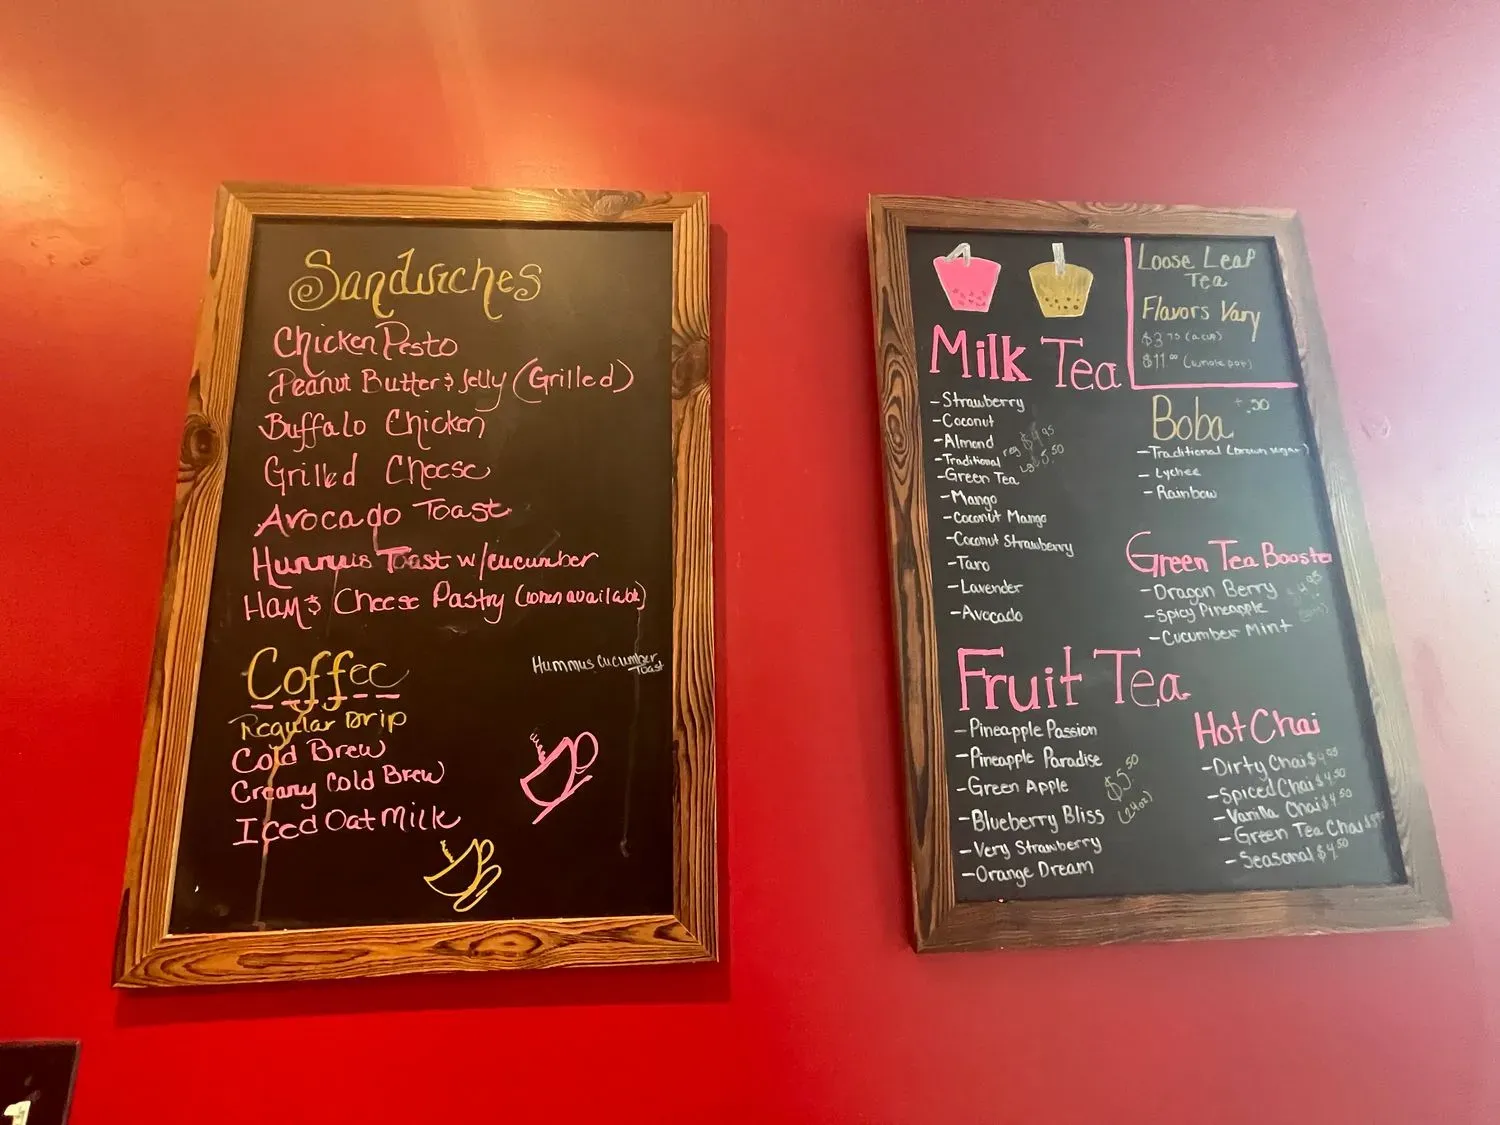 Sandwiches
Chicken Pesto
Peanut Butter & Jelly (Grilled)
Buffalo Chicken
Grilled Cheese
Avocado Toast
Hummus Toast w/cucumber
Ham & Cheese Pastry (when available)
Hummus Cucumber
Toast
Coffee
Regular Drip
Cold Brew
Creamy Cold Brew
Iced Oat Milk
Milk Tea
-Strawberry
-Coconut
-Almond
-Traditional
reg $4.95
Lg 5.50
-Green Tea
-Mango
-Coconut Mango
-Coconut Strawberry
-Taro
-Lavender
-Avocado
Fruit Tea
-Pineapple Passion
-Pineapple Paradise
-Green Apple
-Blueberry Bliss
-Very Strawberry
-Orange Dream
$5.50
(24oz)
Loose Leaf
Tea
Flavors Vary
$3.75 (a cup)
$11.00 (whole pot)
Boba +.50
-Traditional (brown sugar)
-Lychee
-Rainbow
Green Tea Booster
-Dragon Berry
-Spicy Pineapple
-Cucumber Mint
Hot Chai
-Dirty Chai
-Spiced Chai $4.50
-Vanilla Chai $4.50
-Green Tea Chai
-Seasonal $4.50